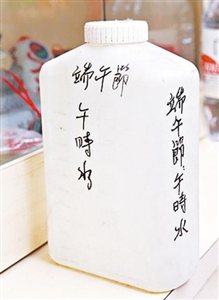 端午節
午時水
端午節:午時水